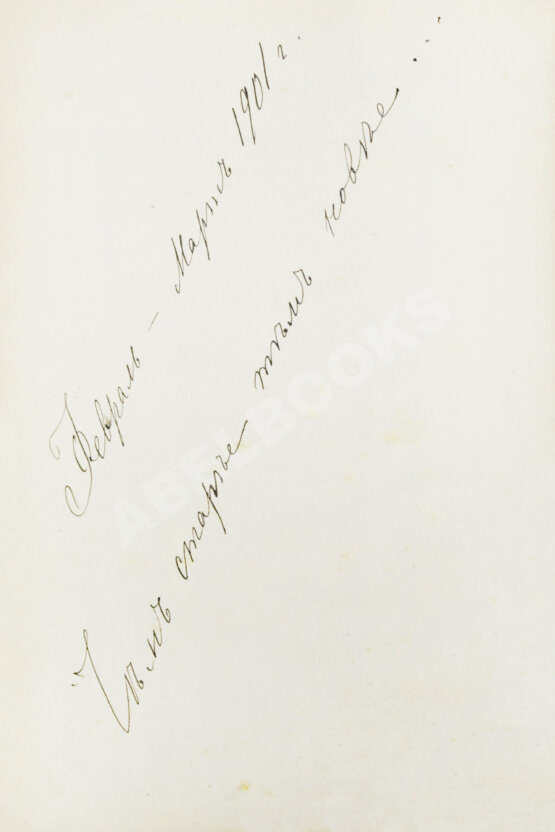 Февраль – Мартъ 1901 г.
Чѣмъ старѣе тѣмъ новѣе...
ABELBOOKS